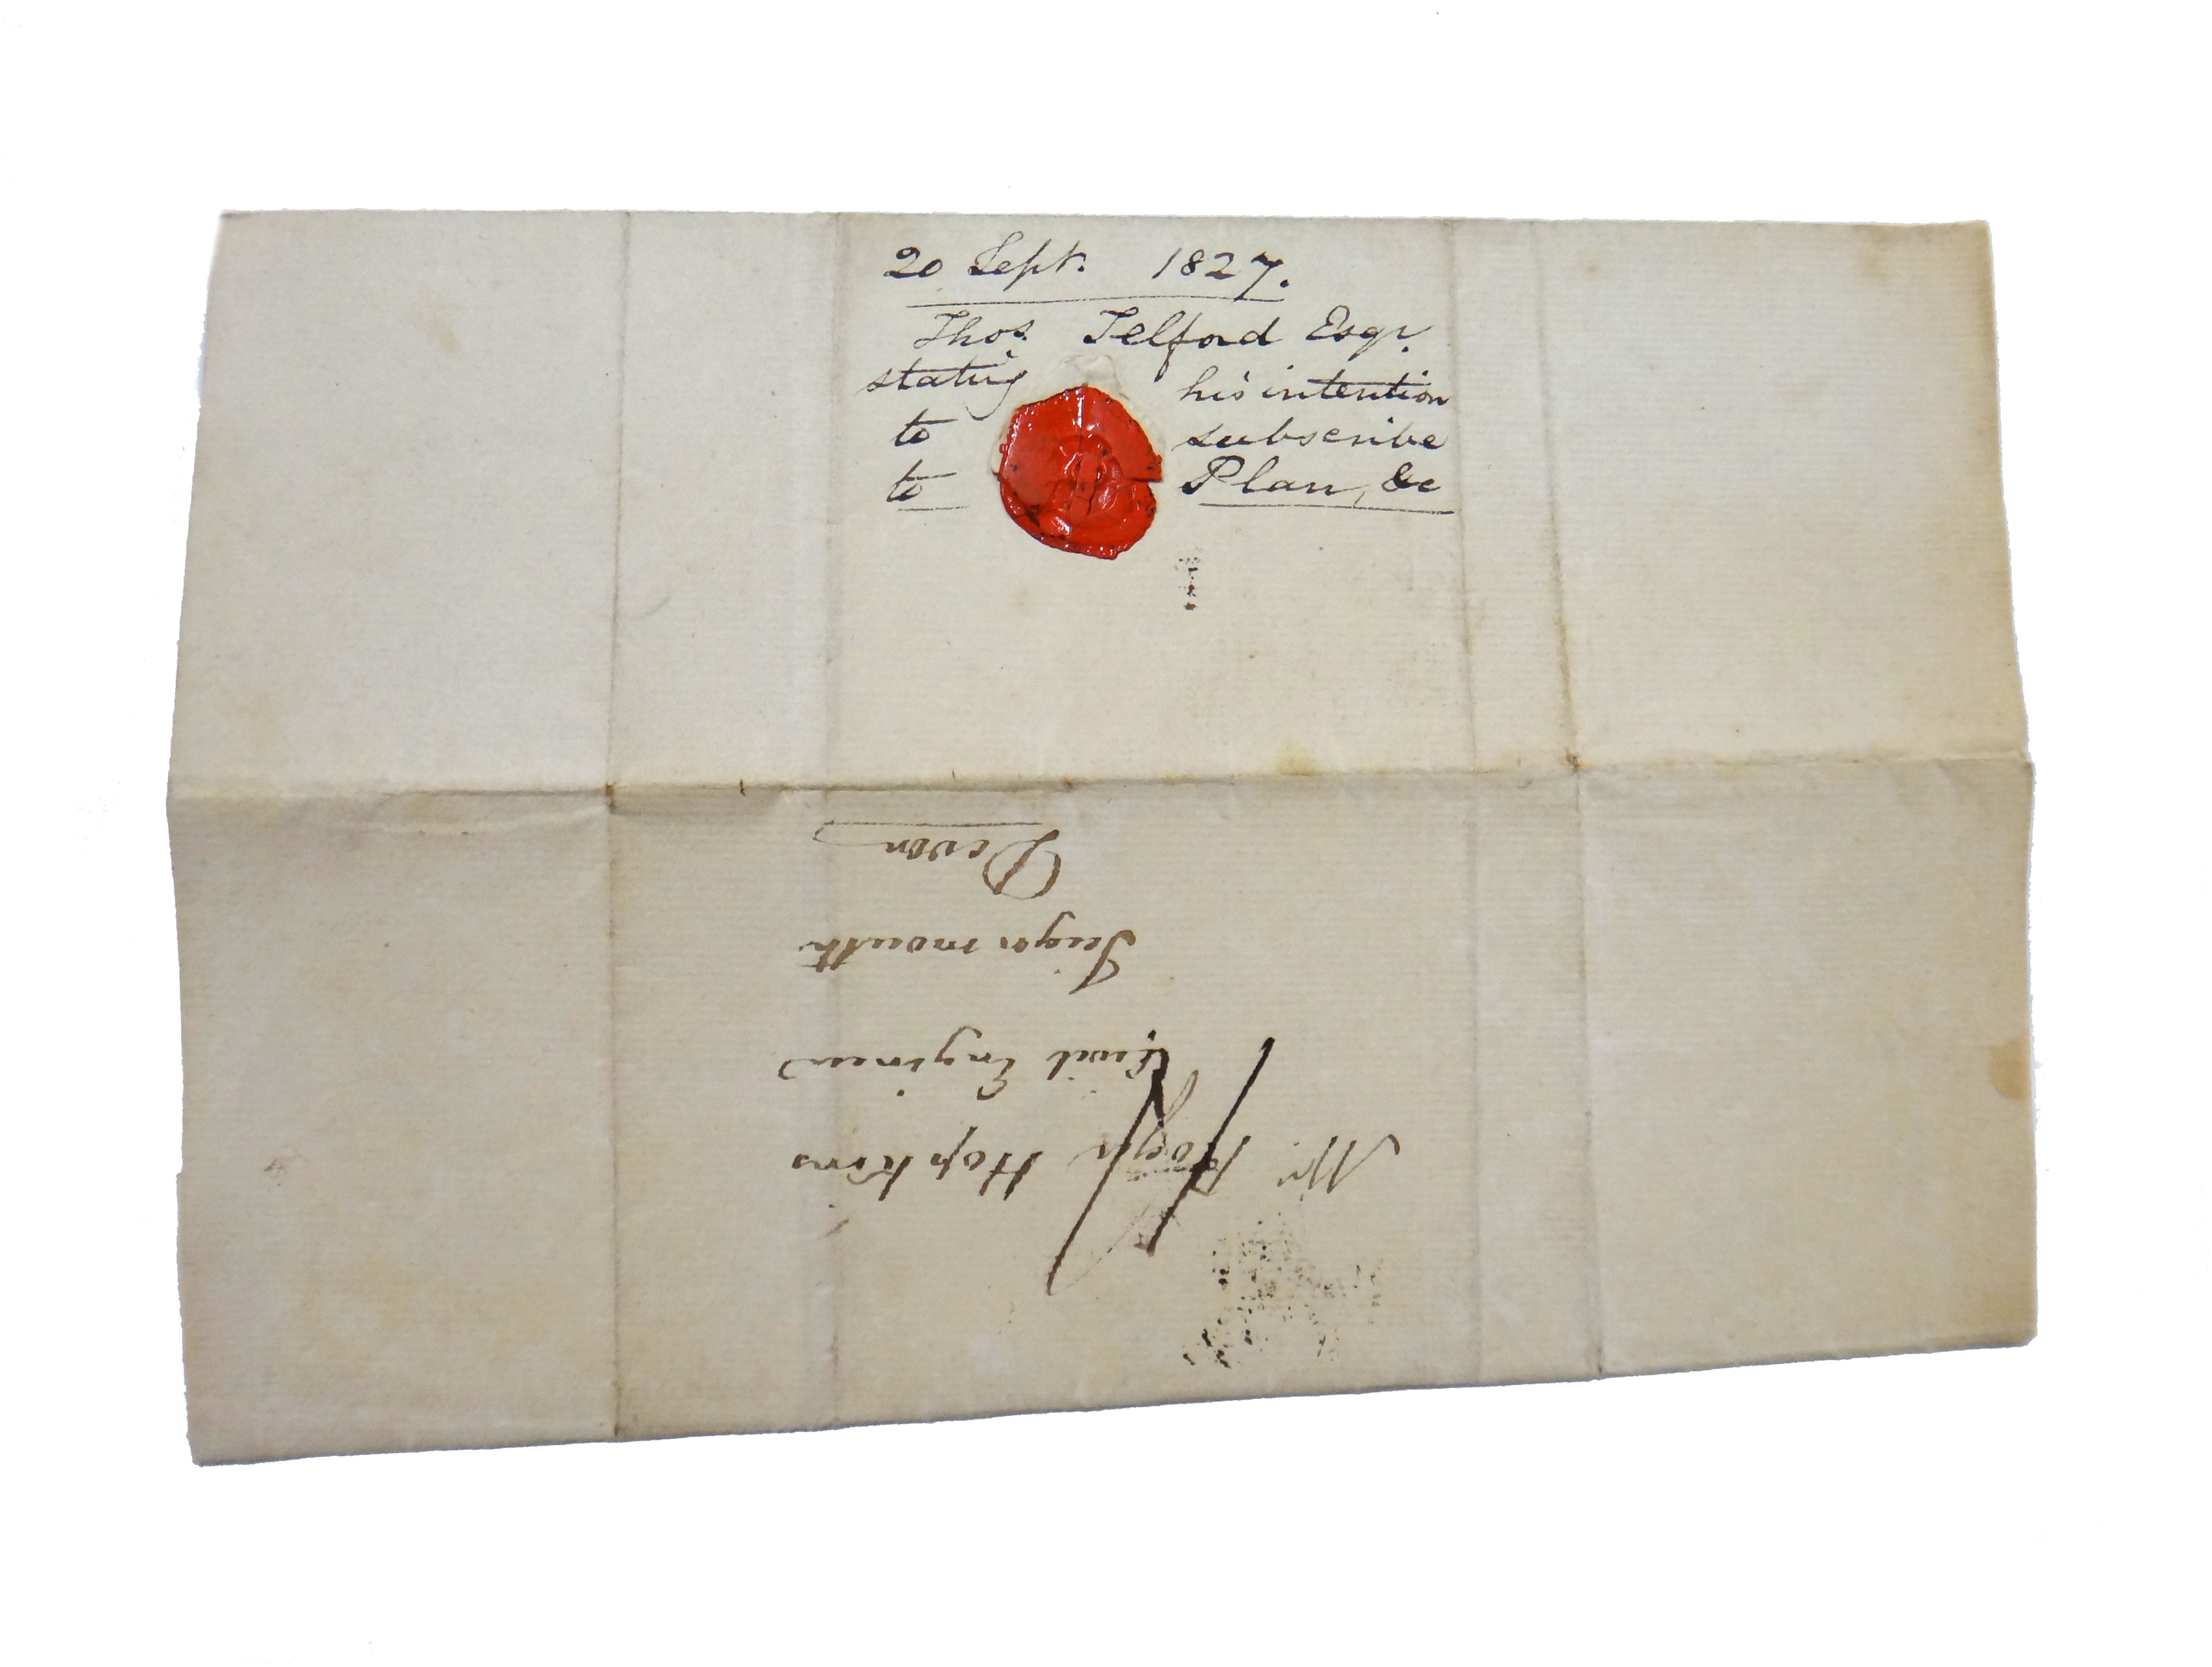 20 Sept. 1827.
Thos. Telford Esqr.
stating his intention
to subscribe
to Plan, &c
Mr. Rogr Hopkins
Civil Engineer
Teignmouth
Devon